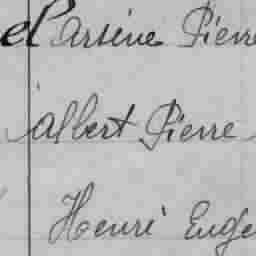 Arsène Pierre
Albert Pierre
Henri Euge